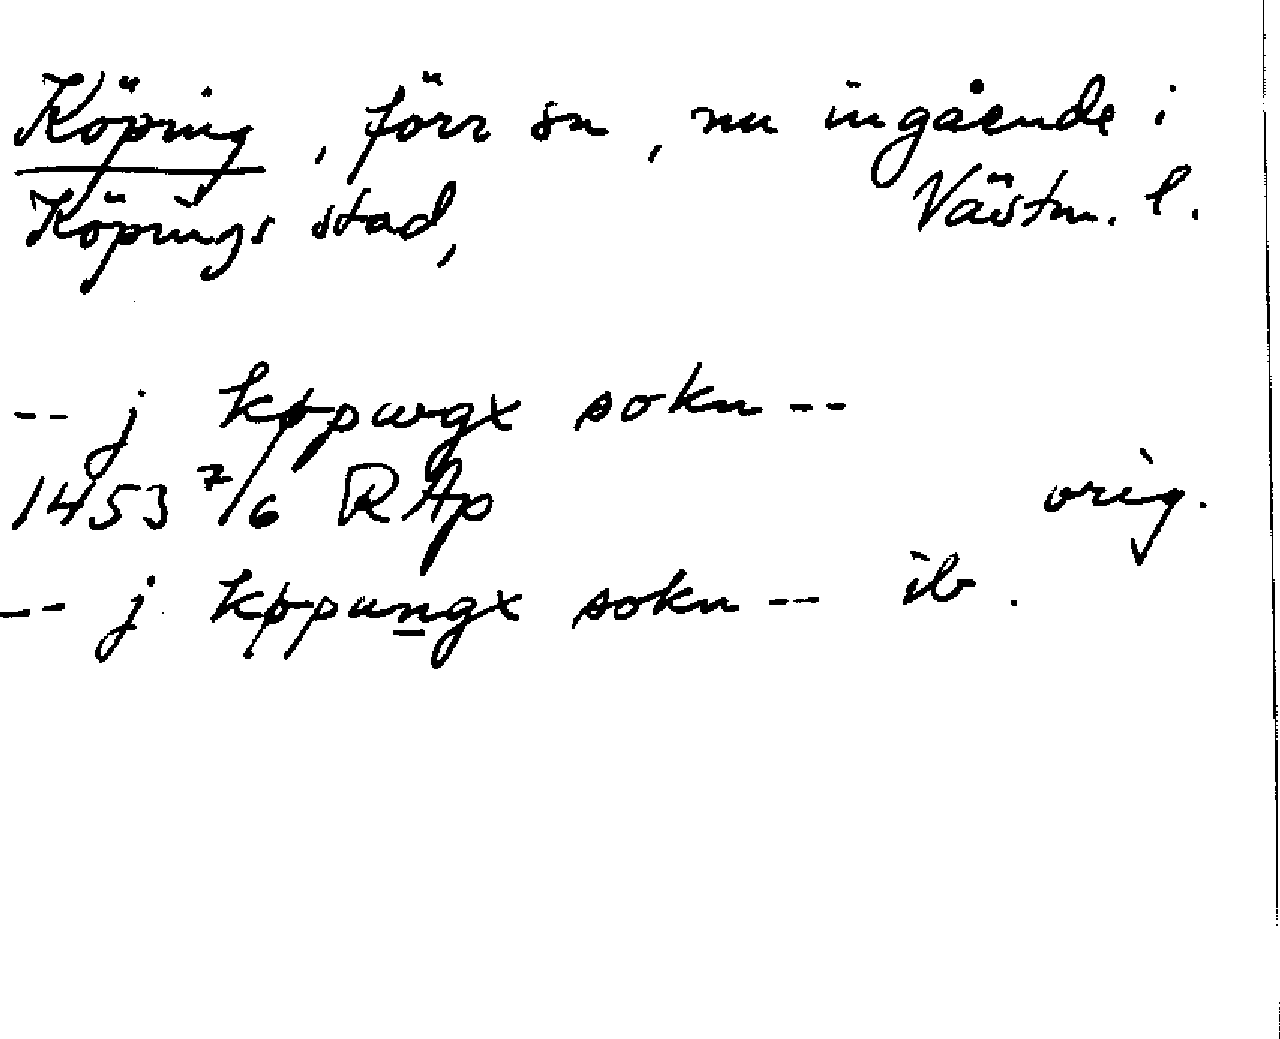 Köping, förr sn, nu ingående i
Köpings stad, Västm. l.
-- j køpwgx sokn --
1453 7/6 RAp orig.
-- j køpungx sokn -- ib.